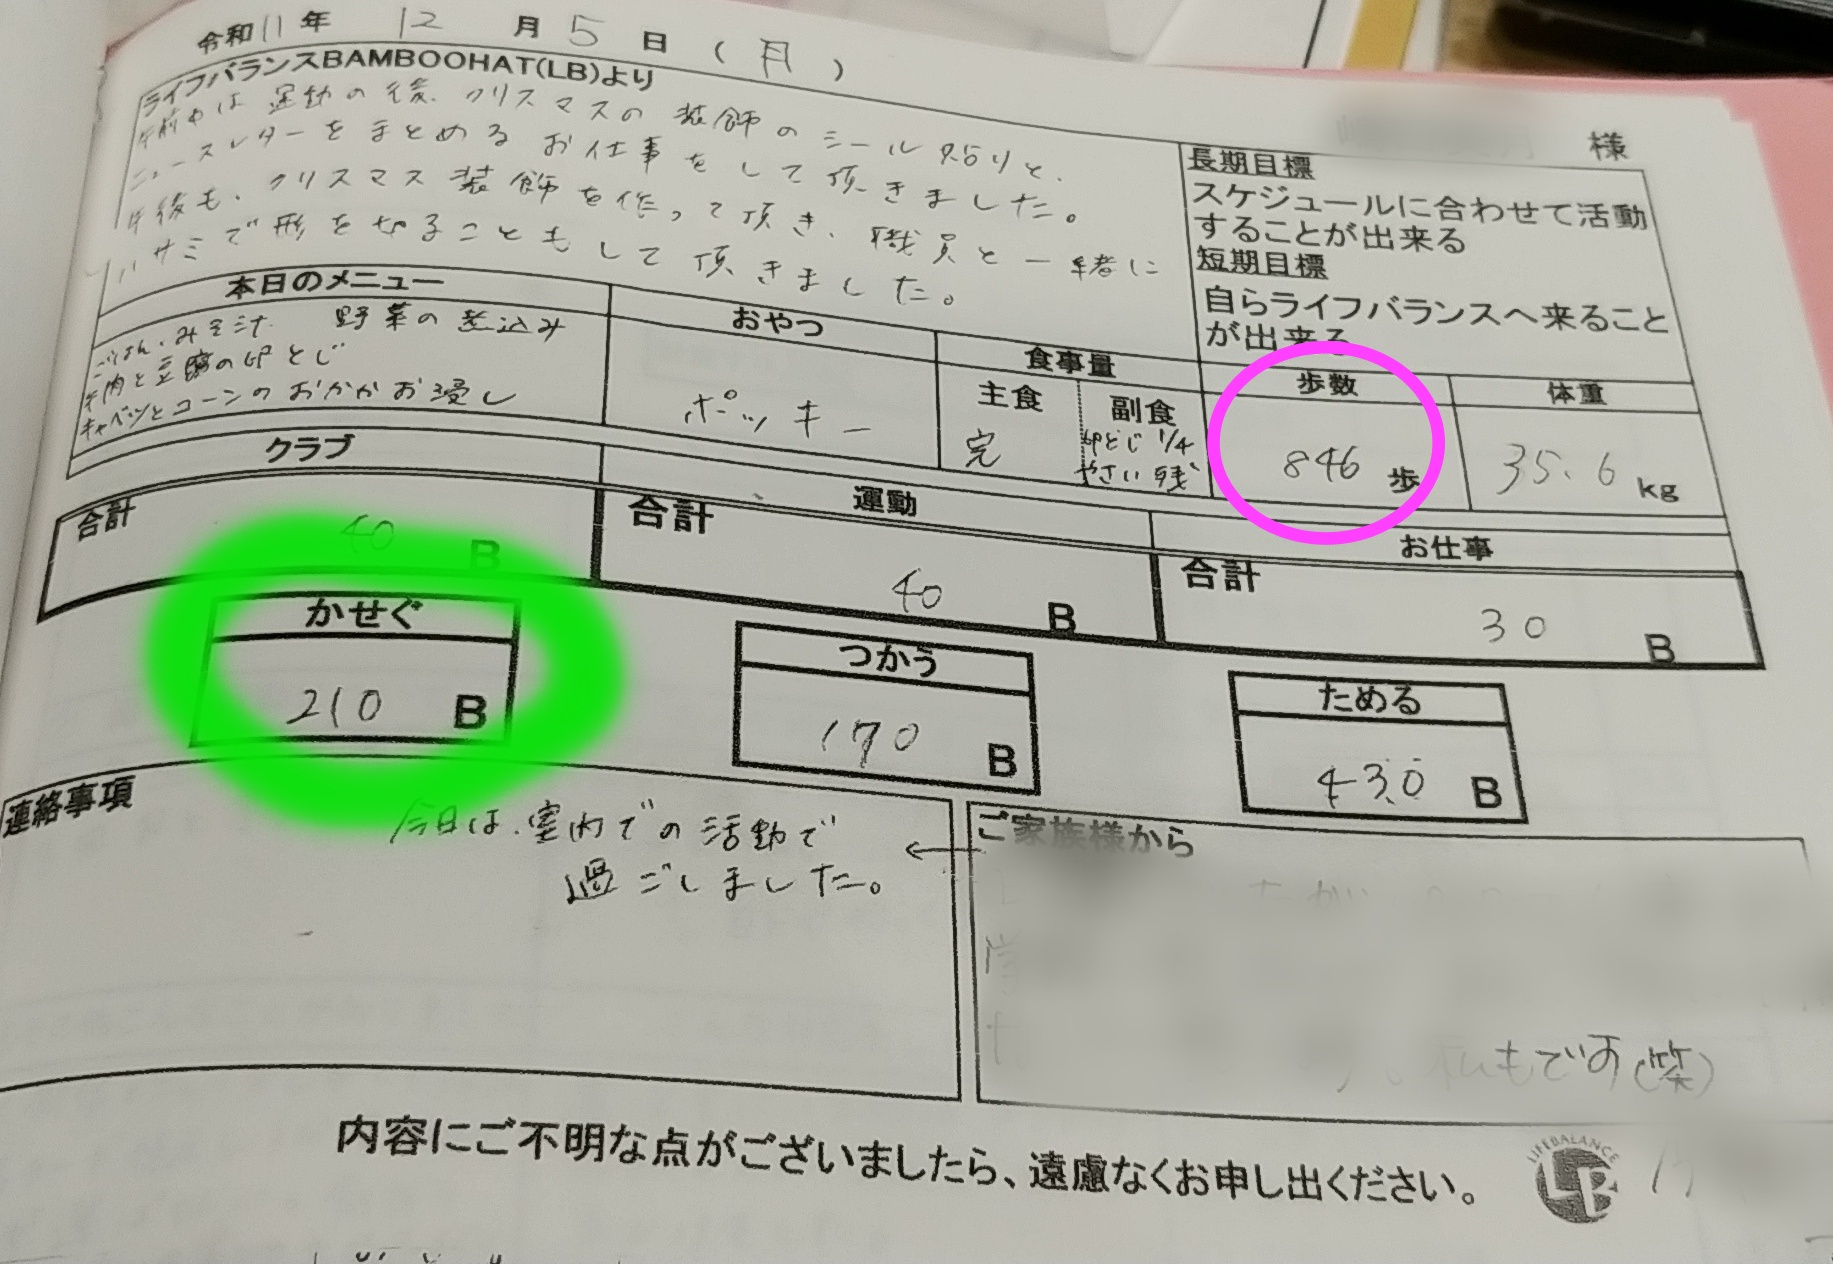 令和11年 12月5日(月)
ライフバランスBAMBOOHAT(LB)より
午前中は運動の後、クリスマスの装飾のシール貼りと、
ニュースレターをまとめるお仕事をして頂きました。
午後も、クリスマス装飾を作って頂き、職員と一緒に
ハサミで形を切ることもして頂きました。
様
長期目標
スケジュールに合わせて活動
することが出来る
短期目標
自らライフバランスへ来ること
が出来る
本日のメニュー
ごはん、みそ汁 野菜の煮込み
牛肉と豆腐の卵とじ
キャベツとコーンのおかかお浸し
おやつ
ポッキー
食事量
主食
完
副食
卵とじ 1/4
やさい 残
歩数
846 歩
体重
35.6 kg
クラブ
合計 40 B
運動
合計 40 B
お仕事
合計 30 B
かせぐ
210 B
つかう
170 B
ためる
430 B
連絡事項
今日は、室内での活動で
過ごしました。
←
ご家族様から
私もです(笑)
内容にご不明な点がございましたら、遠慮なくお申し出ください。
LIFEBALANCE
LB